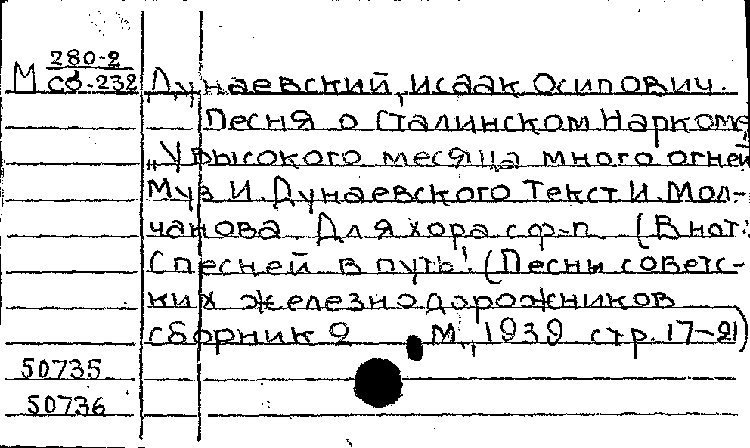 М 280-2
Сб.232
Дунаевский, Исаак Осипович.
Песня о Сталинском Наркоме
„У высокого месяца много огней
Муз И. Дунаевского Текст И. Мол-
чанова. Для хора с ф-п (В нот:
С песней в путь! (Песни советс-
ких железнодорожников
сборник 2 М., 1939 стр. 17-21)
50735
50736